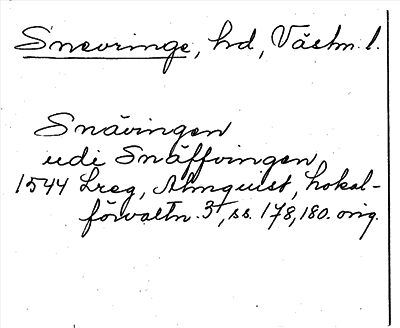 Snevringe, hd, Västm. l.
Snävingen
udi Snäffvingen
1544 Lreg, Almquist, Lokal-
förvaltn. 3, ss. 178, 180. orig.